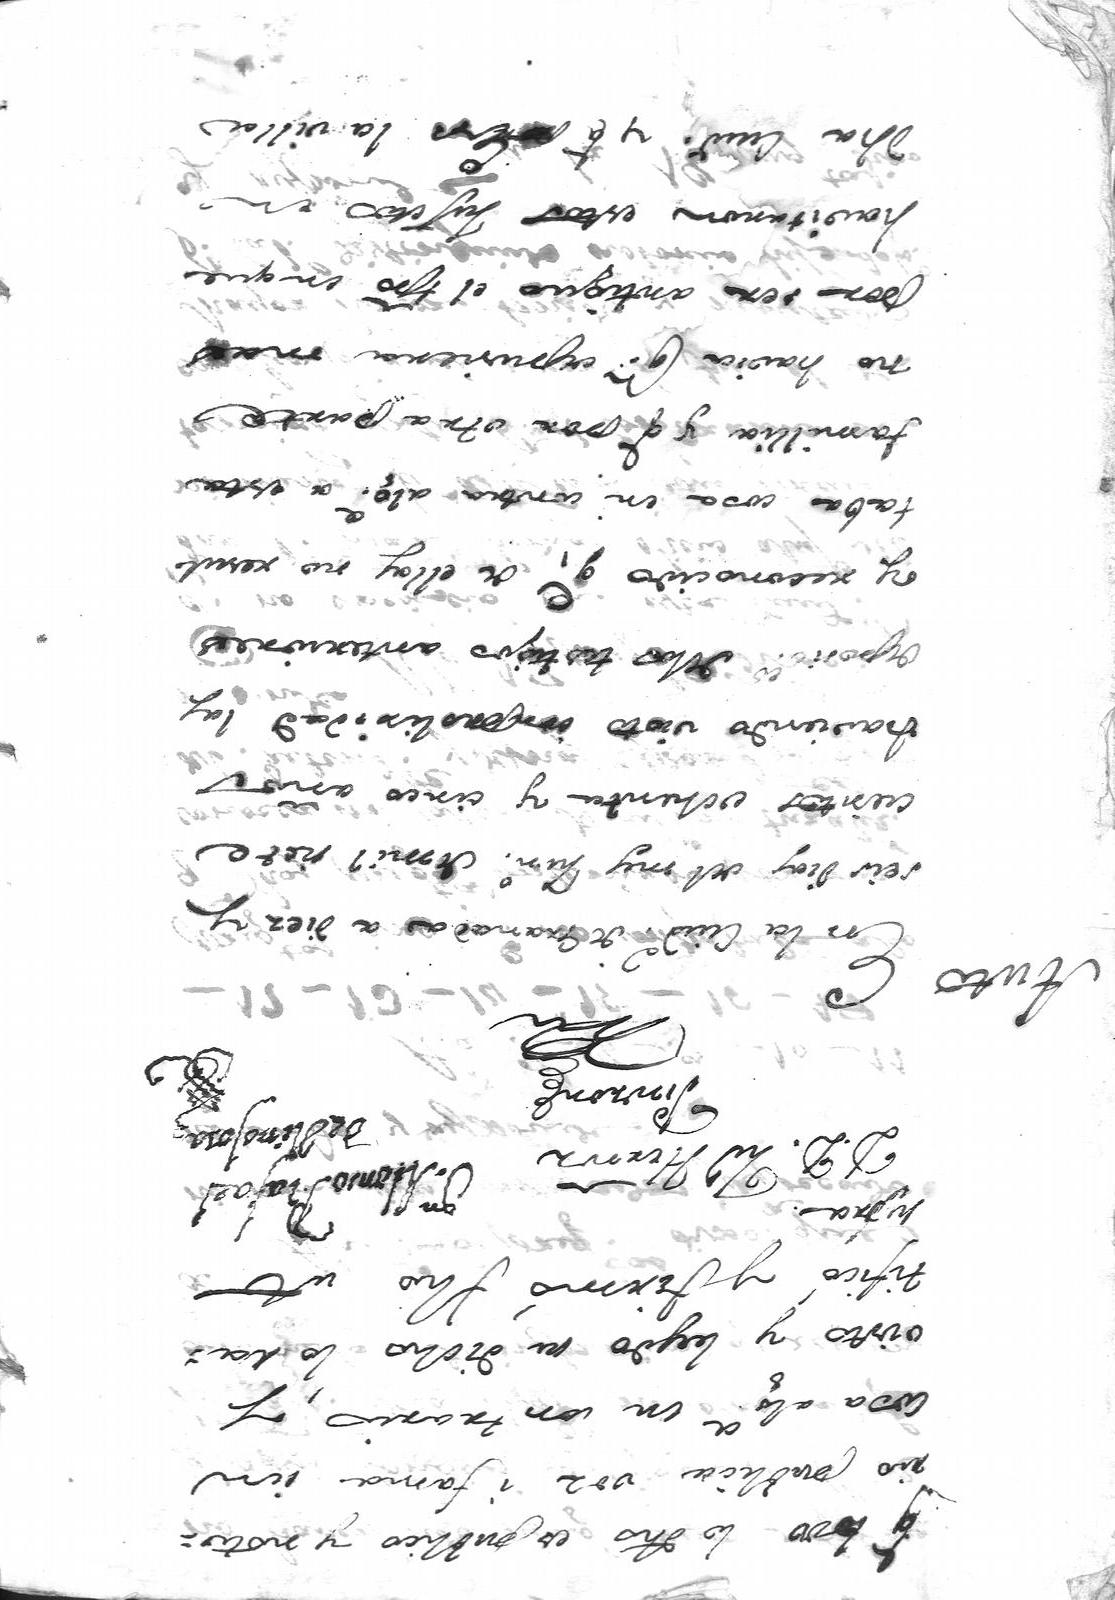 q̄ todo lo dho es publico y noto=
rio publica voz i fama sin
cosa alg.ª en contrario, y
visto y leydo su dicho lo ra=
tificó y firmó fho ut
supra.
D.ⁿ Antonio Rafael
de Hinojosa
Auto
En la Ciud.ᵈ de Granada a diez y
seis dias del mes Jun.º de mil sete
cientos ochenta y cinco años
haviendo visto con prolixidad las
deposic.ˢ de los testigos anteriores
y reconocido q.ᵉ de ellas no resul
taba cosa en contra alg.ª a esta
familia y q̄ por otra parte
no havia q.ⁿ expusiera mas
por ser antiguo el tpō en que
havitaron estos sujetos en
dha Ciud. y q̄ la villa